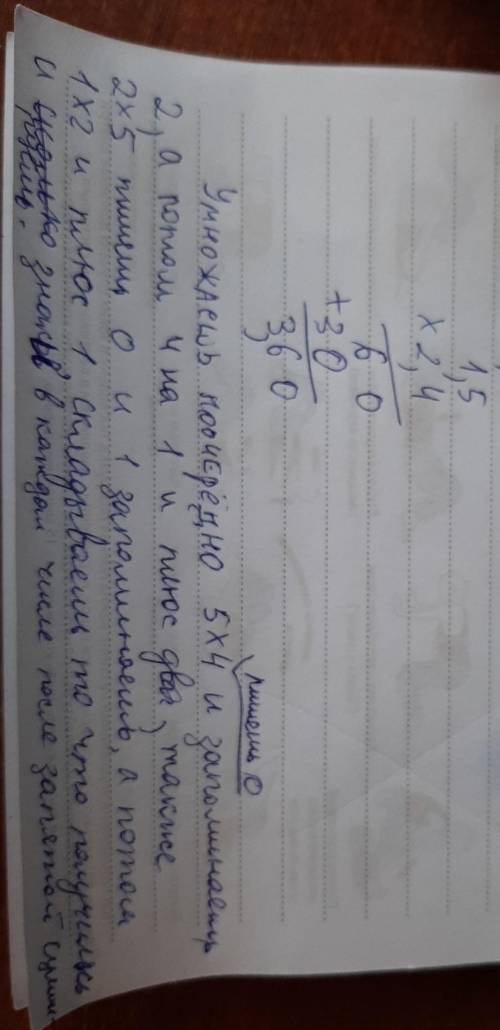 1,5
× 2,4
6 0
+ 3 0
3,6 0
пишешь 0
Умножаешь поочерёдно 5×4 и запоминаешь
2, а потом 4 на 1 и плюс два, также
2×5 пишешь 0 и 1 запоминаешь, а потом
1×2 и плюс 1 складываешь то что получилось
и знаков в каждом числе после запятой